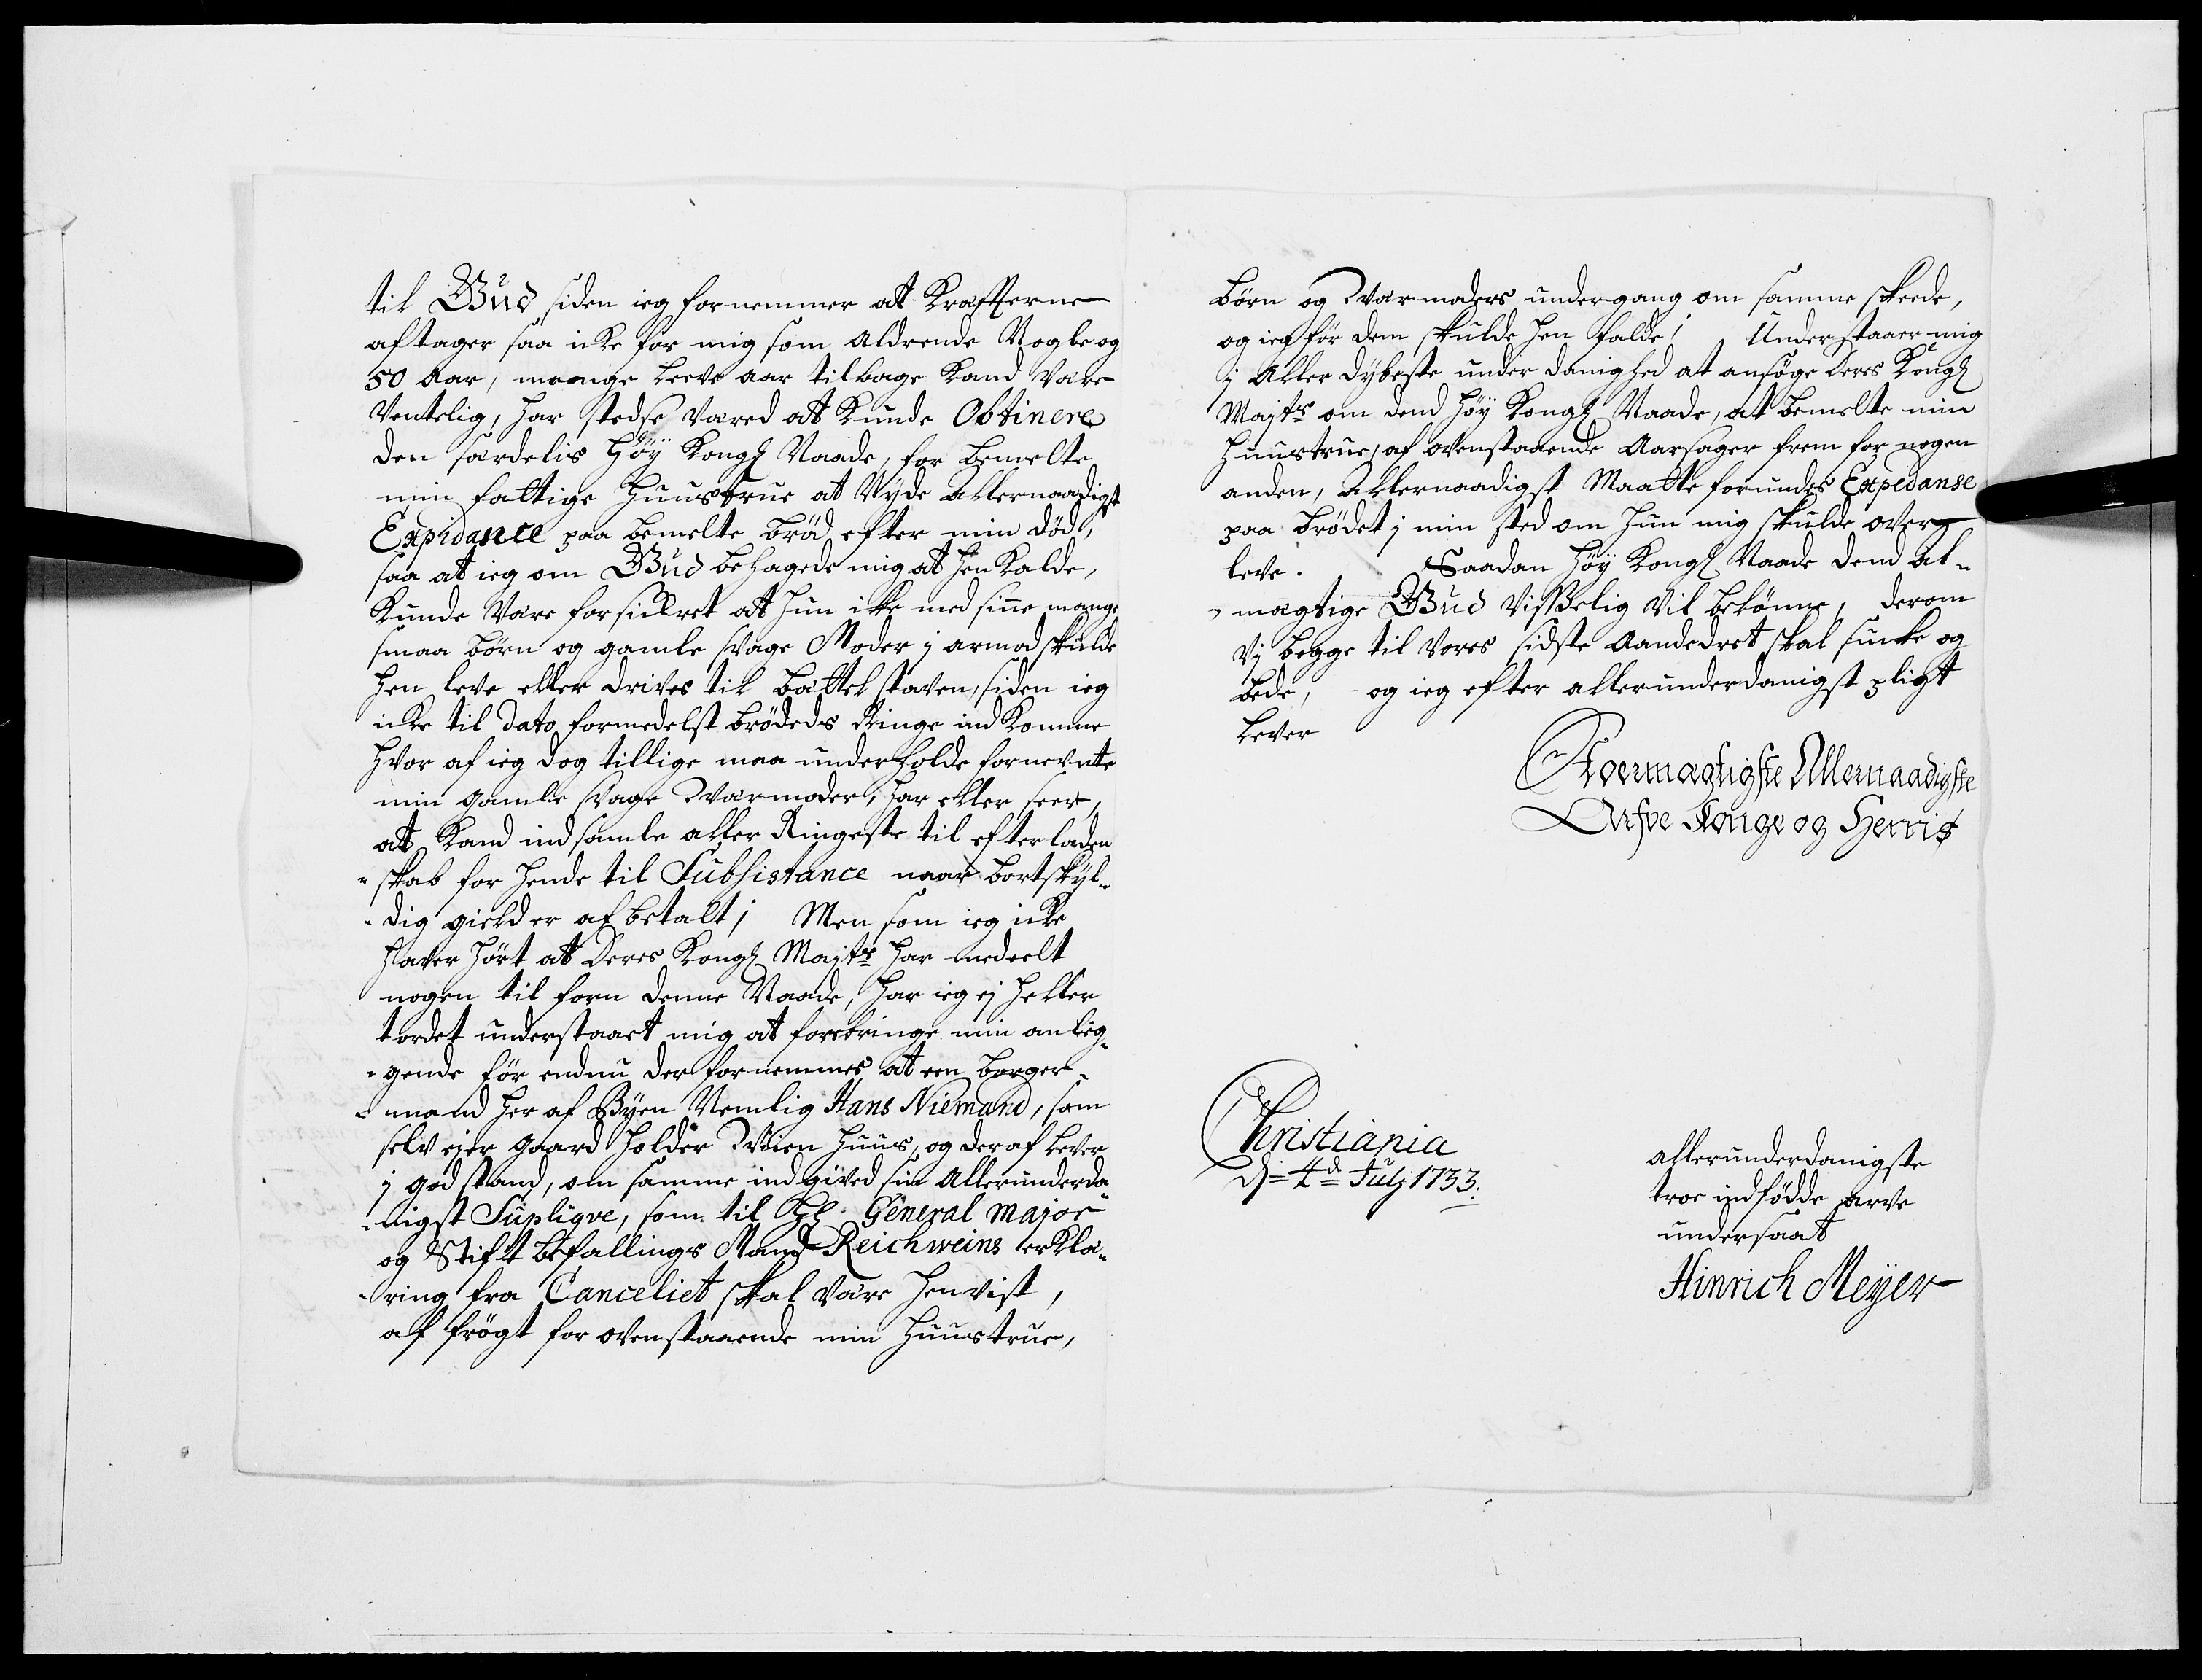 til Gud siden ieg fornemmer at Kræffterne
aftager saa icke for mig som aldrende Nogle og
50 Aar, mange leeve aar tilbage Kand være
Ventelig, har stedse vared at Kunde Obtinere
den særdelis Høÿ Kongl Naade, for bemelte
min fattige Huustrue at Nÿde Allernaadigst
Expidance paa bemelte brød efter min død,
saa at ieg om Gud behagede mig at hen Kalde,
Kunde Være forsickret at hun ikke med sine mange
smaa børn og gamle svage Moder j armod skulde
hen leve eller drives til bættelstaven, siden ieg
icke til dato formedelst brødeds Ringe ind Komme
hvor af ieg dog tillige maa underholde fornevnte
min gamle svage Værmoder, har eller seer,
at Kand indsamle aller Ringeste til efterladen
-skab for hende til Subsistance naar bortskÿl-
-dig gield er af betalt; Men som ieg icke
haver hørt at Deres Kongl Majts har medeelt
nogen til forn denne Naade, har ieg ej heller
tordet understaaet mig at forebringe min anlig-
-gende før endnu der fornemmes at een borger-
-mand her af Bÿen Nemlig Hans Niemand, som
selv ejer gaard holder Viin huus, og der af lever
j god stand, om samme indgived sin Allerunderda-
-nigst Supliqve, som til Hl General major
og Stift befallings Mand Reichweins erklæ-
-ring fra Canceliet skal være henvist,
af frøgt for ovenstaaende min Huustrue,
børn og Værmoders undergang om samme skeede,
og ieg før dem skulde hen falde; Understaaer mig
j Aller dÿbeste under danighed at ansøge Deres Kongl
Majts om dend høÿ Kongl Naade, at bemelte min
Huustrue, af ovenstaaende Aarsager frem for nogen
anden, Allernaadigst Maatte forundes Expedanse
paa brødet j min sted om hun mig skulde over
leve. Saadan høÿ Kongl Naade dend al-
-mægtige Gud visselig vil belønne, derom
Vj begge til vores sidste Aandedret skal sucke og
bede, og ieg efter allerunderdanigst pligt
lever
Stoermægtigste Allernaadigste
Arfve Konge og Herris
Christiania
d 4de Julj 1733.
allerunderdanigste
troe indfødde arve
undersaat
Hinrich Meÿer